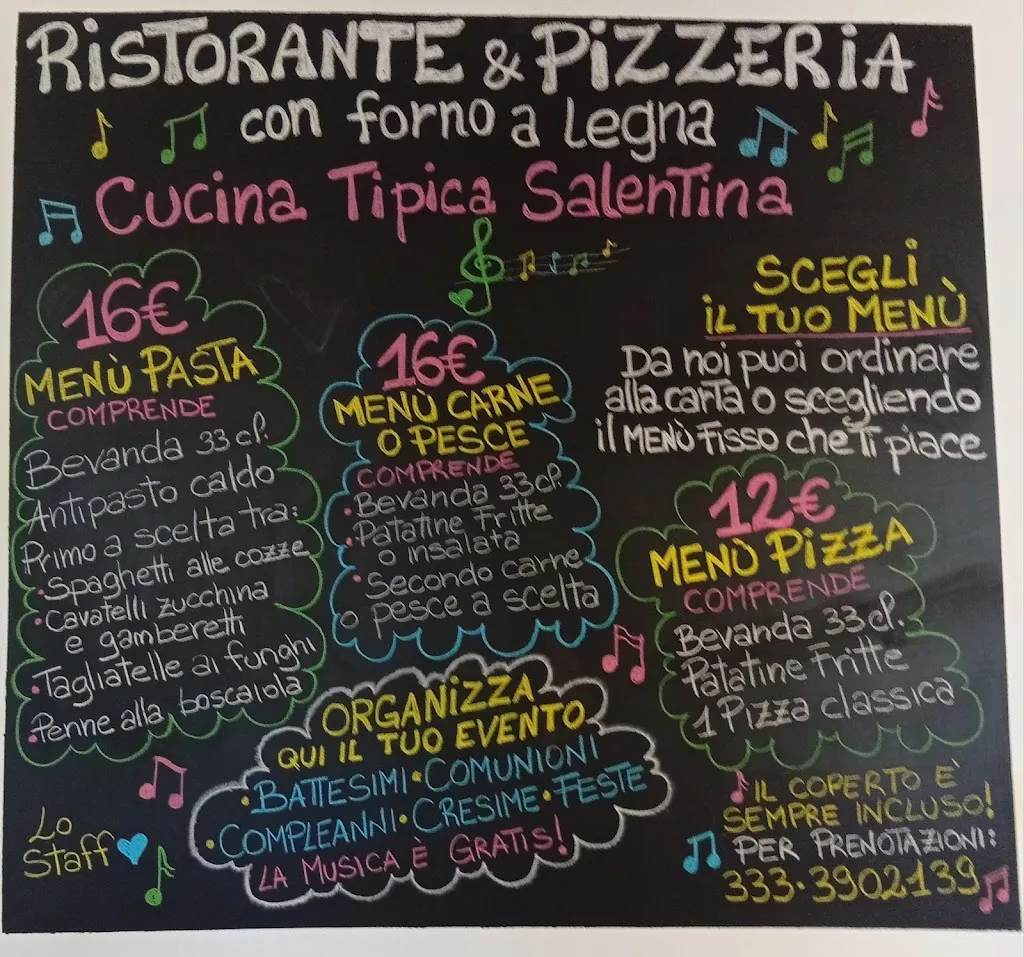 RiSTORANTE & PiZZERiA
con forno a legna
Cucina Tipica Salentina
16€
MENÙ PASTA
COMPRENDE
Bevanda 33 cl.
Antipasto caldo
Primo a scelta tra:
• Spaghetti alle cozze
• Cavatelli zucchina
e gamberetti
• Tagliatelle ai funghi
• Penne alla boscaiola
16€
MENÙ CARNE
O PESCE
COMPRENDE
• Bevanda 33 cl.
• Patatine Fritte
o insalata
• Secondo carne
o pesce a scelta
SCEGLI
iL TUO MENÙ
Da noi puoi ordinare
alla carta o scegliendo
il MENÙ FISSO che Ti piace
12€
MENÙ PiZZA
COMPRENDE
Bevanda 33 cl.
Patatine Fritte
1 Pizza classica
ORGANiZZA
QUI IL TUO EVENTO
• BATTESIMI • COMUNIONI
• COMPLEANNI • CRESIME • FESTE
LA MUSICA È GRATIS!
Lo
Staff
IL COPERTO E'
SEMPRE INCLUSO!
PER PRENOTAZIONI:
333.3902139